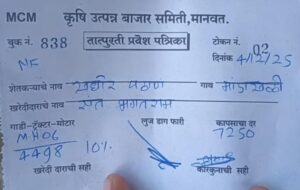 MCM कृषि उत्पन्न बाजार समिती,मानवत.
बुक नं. 838 तात्पुरती प्रवेश पत्रिका टोकन नं. 02
NF 4/12/25
शेतकऱ्याचे नाव पठाण गाव मांडाखळी
खरेदीदाराचे नाव भगतराम
गाडी-ट्रॅक्टर-मोटार लुज डाग फारी कापसाचा दर
MH06 7250
4498 10%
खरेदी दाराची सही कारकुनाची सही